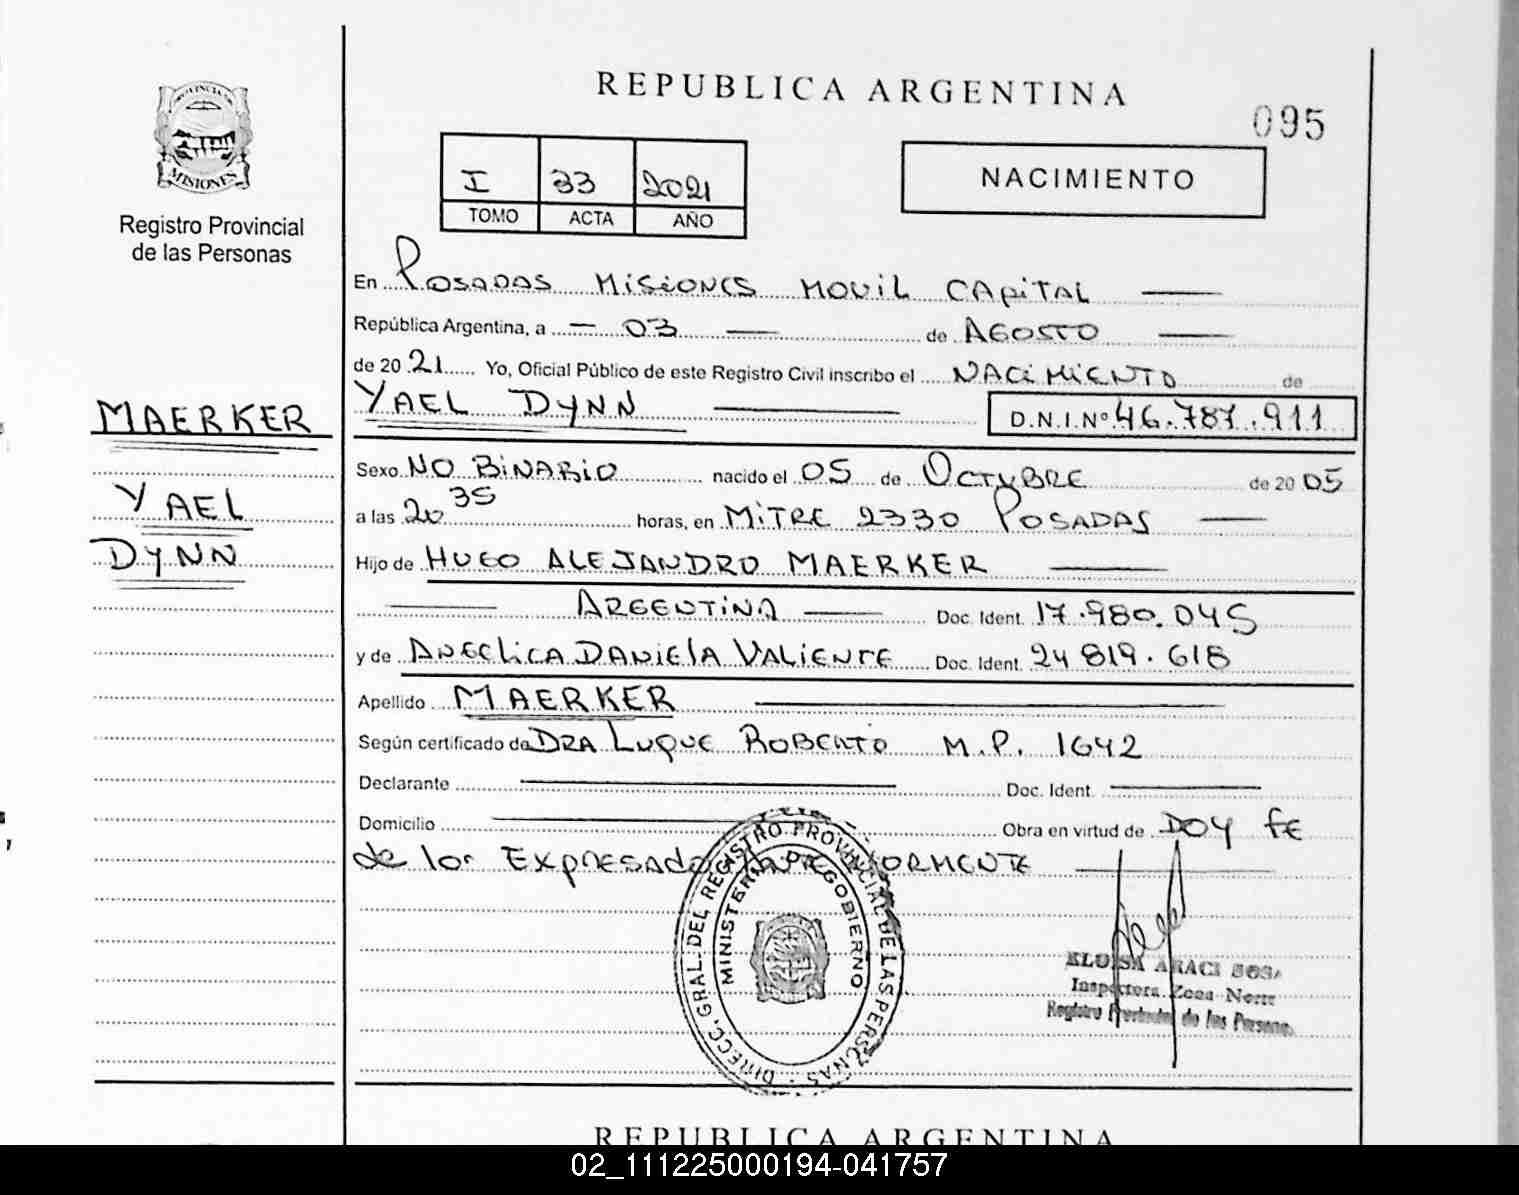 REPUBLICA ARGENTINA
095
PROVINCIA DE
MISIONES
Registro Provincial
de las Personas
I 33 2021
TOMO ACTA AÑO
NACIMIENTO
En Posadas Misiones Movil Capital
República Argentina, a - 03 - de Agosto
de 20 21 Yo, Oficial Público de este Registro Civil inscribo el NACIMIENTO de
YAEL DYNN D.N.I.Nº 46.787.911
MAERKER
YAEL
DYNN
Sexo NO BINARIO nacido el 05 de Octubre de 20 05
a las 20 35 horas, en MITRE 2330 POSADAS
Hijo de HUGO ALEJANDRO MAERKER
ARGENTINA Doc. Ident. 17.980.045
y de ANGELICA DANIELA VALIENTE Doc. Ident. 24 819.618
Apellido MAERKER
Según certificado de DRA LUQUE ROBERTO M.P. 1642
Declarante Doc. Ident.
Domicilio Obra en virtud de DOY FE
de lo EXPRESADO ANTERIORMENTE
DIRECC. GRAL. DEL REGISTRO PROVINCIAL DE LAS PERSONAS
MINISTERIO DE GOBIERNO
ELOISA ARACI SOSA
Inspectora Zona Norte
Registro Provincial de las Personas
REPUBLICA ARGENTINA
02_111225000194-041757